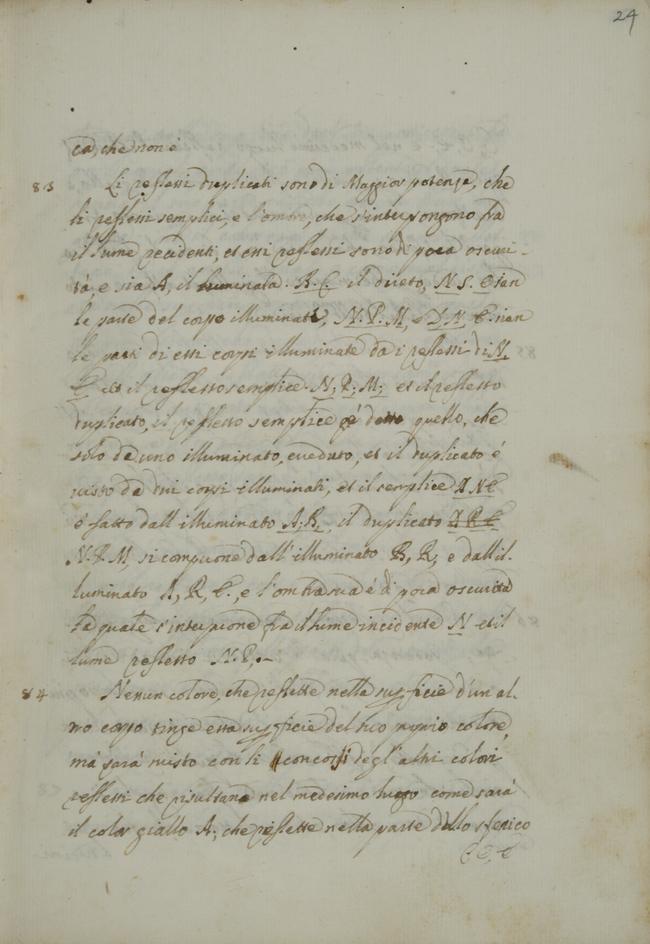 24
ca, che non è
83 Li reflessi duplicati sono di Maggior potenza, che
li reflessi semplici, e l'ombre, che s'interpongono fra
il lume recidenti, et essi reflessi sono di poca oscuri-
tà, e sia A, il luminata. B. C. il direto, N S. O sian
le parte del corpo illuminate, N. P. M, e
le parti di essi corpi illuminate da i reflessi di N.
et il reflesso semplice. N, P, M; et il reflesso
duplicato, il reflesso semplice è detto quello, che
solo da uno illuminato, è veduto, et il duplicato é
visto da dui corpi illuminati, et il semplice
è fatto dall'illuminato A, B, il duplicato
N. P. M, si compione dall'illuminato B, R, e dall'il-
luminato A, R, e l'ombra sua é di poca oscurità
la quale s'interpione fra il lume incidente N et il
lume reflesso N. P,.~
84 Nessun colore, che reflette nella superficie d'un al-
tro corpo tinge essa superficie del suo proprio colore,
má sará misto con li concorsi degl'altri colori
reflessi che risultana nel medesimo luogo come sará
il color giallo A, che reflette nella parte dello sferico